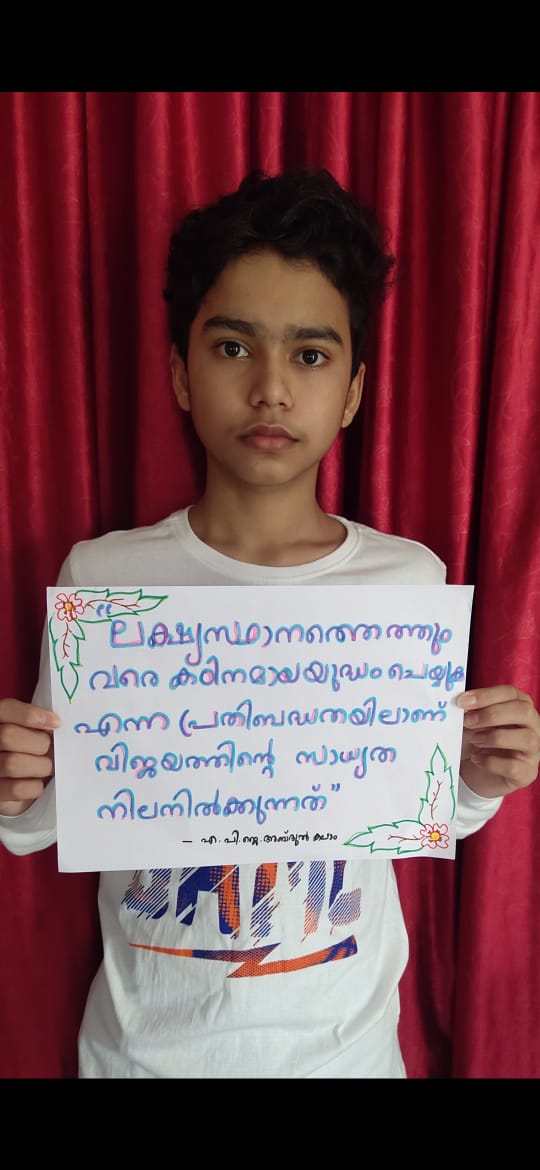 “ലക്ഷ്യസ്ഥാനത്തെത്തും
വരെ കഠിനമായയുദ്ധം ചെയ്യുക
എന്ന പ്രതിബദ്ധതയിലാണ്
വിജയത്തിന്റെ സാധ്യത
നിലനിൽക്കുന്നത്”
– എ.പി.ജെ.അബ്ദുൽ കലാം